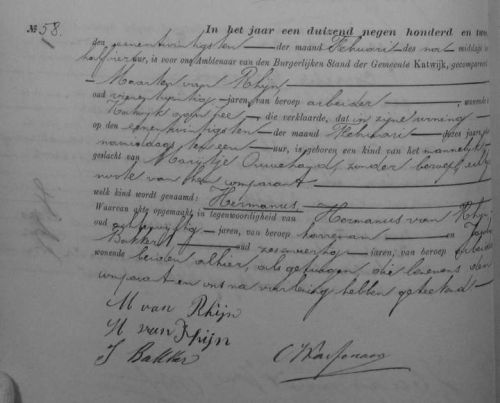 No 58. In het jaar een duizend negen honderd en twee
den eenentwintigsten der maand Februari des na middags te
half vier uur, is voor ons Ambtenaar van den Burgerlijken Stand der Gemeente Katwijk, gecompareerd
Maarten van Rhijn
oud jaren, van beroep arbeider, wonende
Katwijk aan Zee, die verklaarde, dat in zijne woning
op den eenentwintigsten der maand Februari dezes jaars
namiddags ten een uur, is geboren een kind van het mannelijk
geslacht van Marijtje Ouwehand, zonder beroep, echt
van hem comparant
welk kind wordt genaamd: Hermanus
Waarvan akte opgemaakt in tegenwoordigheid van Hermanus van Rhijn
oud jaren, van beroep en
Bakker oud jaren, van beroep arbeider
wonende beiden alhier, als getuigen, die benevens den
comparant en ons na voorlezing hebben geteekend
M van Rhijn
H van Rhijn
J Bakker